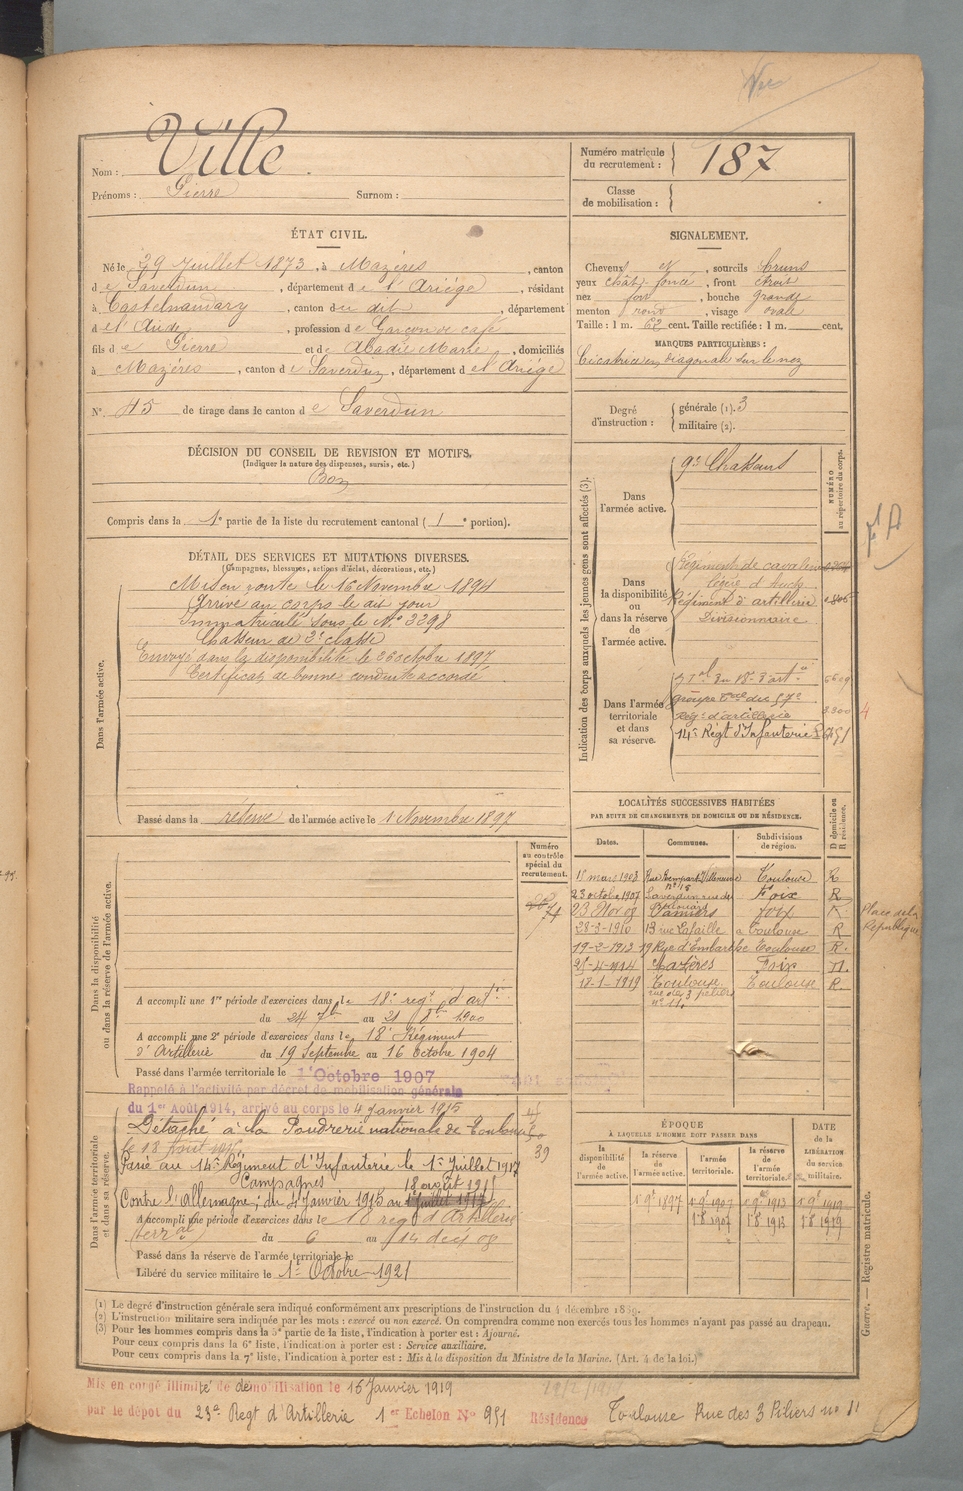 Nom : Ville
Prénoms : Pierre Surnom :
Numéro matricule du recrutement : 187
Classe de mobilisation :
ÉTAT CIVIL.
Né le 29 Juillet 1873, à Mazères, canton
de Saverdun, département de l'Ariège, résidant
à Castelnaudary, canton de dit, département
de l'Aude, profession de Garçon de café
fils de Pierre et de Abadie Marie, domiciliés
à Mazères, canton de Saverdun, département de l'Ariège
N° 45 de tirage dans le canton de Saverdun
SIGNALEMENT.
Cheveux et, sourcils bruns
yeux chât. foncé, front étroit
nez fort, bouche grande
menton rond, visage ovale
Taille : 1 m. 62 cent. Taille rectifiée : 1 m. cent.
MARQUES PARTICULIÈRES :
Cicatrice en diagonale sur le nez
Degré d'instruction : générale (1). 3
militaire (2).
DÉCISION DU CONSEIL DE REVISION ET MOTIFS.
(Indiquer la nature des dispenses, sursis, etc.)
Bon
Compris dans la 1e partie de la liste du recrutement cantonal ( 1 e portion).
DÉTAIL DES SERVICES ET MUTATIONS DIVERSES.
(Campagnes, blessures, actions d'éclat, décorations, etc.)
Dans l'armée active.
Mis en route le 16 Novembre 1894
Arrivé au corps le dit jour
Immatriculé sous le N° 3298
Chasseur de 2e classe
Envoyé dans la disponibilité le 26 octobre 1897
Certificat de bonne conduite accordé
Passé dans la réserve de l'armée active le 1 Novembre 1897
Indication des corps auxquels les jeunes gens sont affectés (3).
NUMÉRO au répertoire du corps.
Dans l'armée active.
9e Chasseurs
Dans la disponibilité ou dans la réserve de l'armée active.
Régiment de cavalerie
légère d'Auch
Régiment d'artillerie
Divisionnaire
Dans l'armée territoriale et dans sa réserve.
groupe Tal du 57e
Régt d'artillerie 3.300 4
14e Régt d'Infanterie
LOCALITÉS SUCCESSIVES HABITÉES
PAR SUITE DE CHANGEMENTS DE DOMICILE OU DE RÉSIDENCE.
Dates. Communes. Subdivisions de région. D domicile ou R résidence.
18 mars 1903 Rue Rempart Villeneuve N° 18 Toulouse R
23 octobre 1907 Saverdun rue du Foix R
23 Nov 08 Pamiers Foix R. Place de la République
28-3-1910 13 rue Lafaille à Toulouse R
19-2-1913 19 Rue d'Embarthe Toulouse R.
Mazères Foix
18-1-1919 Toulouse Toulouse R.
rue des 3 piliers
n° 11.
Numéro au contrôle spécial du recrutement.
Dans la disponibilité ou dans la réserve de l'armée active.
A accompli une 1re période d'exercices dans le 18e régt d'artie
du 24 7bre au 21 8bre 1900
A accompli une 2e période d'exercices dans le 18e Régiment
d'Artillerie du 19 Septembre au 16 Octobre 1904
Passé dans l'armée territoriale le 1 Octobre 1907
Rappelé à l'activité par décret de mobilisation générale
du 1er Août 1914, arrivé au corps le 4 Janvier 1915
Dans l'armée territoriale et dans sa réserve.
Détaché à la Poudrerie nationale de Toulouse
39
Passé au 14e Régiment d'Infanterie le 1er Juillet 1917
Campagnes
Contre l'allemagne ; du 4 Janvier 1915 au
A accompli une période d'exercices dans le 18 reg d'Artillerie
terral du 6 au 14 dec 08
Passé dans la réserve de l'armée territoriale le
Libéré du service militaire le 1er Octobre 1921
ÉPOQUE
À LAQUELLE L'HOMME DOIT PASSER DANS
la disponibilité de l'armée active. la réserve de l'armée active. l'armée territoriale. la réserve de l'armée territoriale. DATE de la LIBÉRATION du service militaire.
1 9e 1897 1 9e 1907 1 9e 1913 1 9e 1919
1 8e 1907 1 8e 1913 1 8e 1919
(1) Le degré d'instruction générale sera indiqué conformément aux prescriptions de l'instruction du 4 décembre 1889.
(2) L'instruction militaire sera indiquée par les mots : exercé ou non exercé. On comprendra comme non exercés tous les hommes n'ayant pas passé au drapeau.
(3) Pour les hommes compris dans la 5e partie de la liste, l'indication à porter est : Ajourné.
Pour ceux compris dans la 6e liste, l'indication à porter est : Service auxiliaire.
Pour ceux compris dans la 7e liste, l'indication à porter est : Mis à la disposition du Ministre de la Marine. (Art. 4 de la loi.)
Guerre. — Registre matricule.
Mis en congé illimité de démobilisation le 15 Janvier 1919
par le dépôt du 23e Regt d'Artillerie 1er Echelon N° 951 Résidence Toulouse Rue des 3 Piliers n° 11